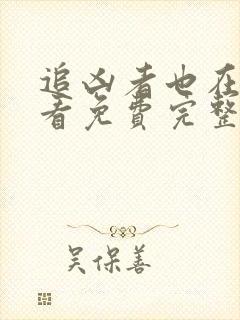 追凶者也在
看免费完整
吴保善